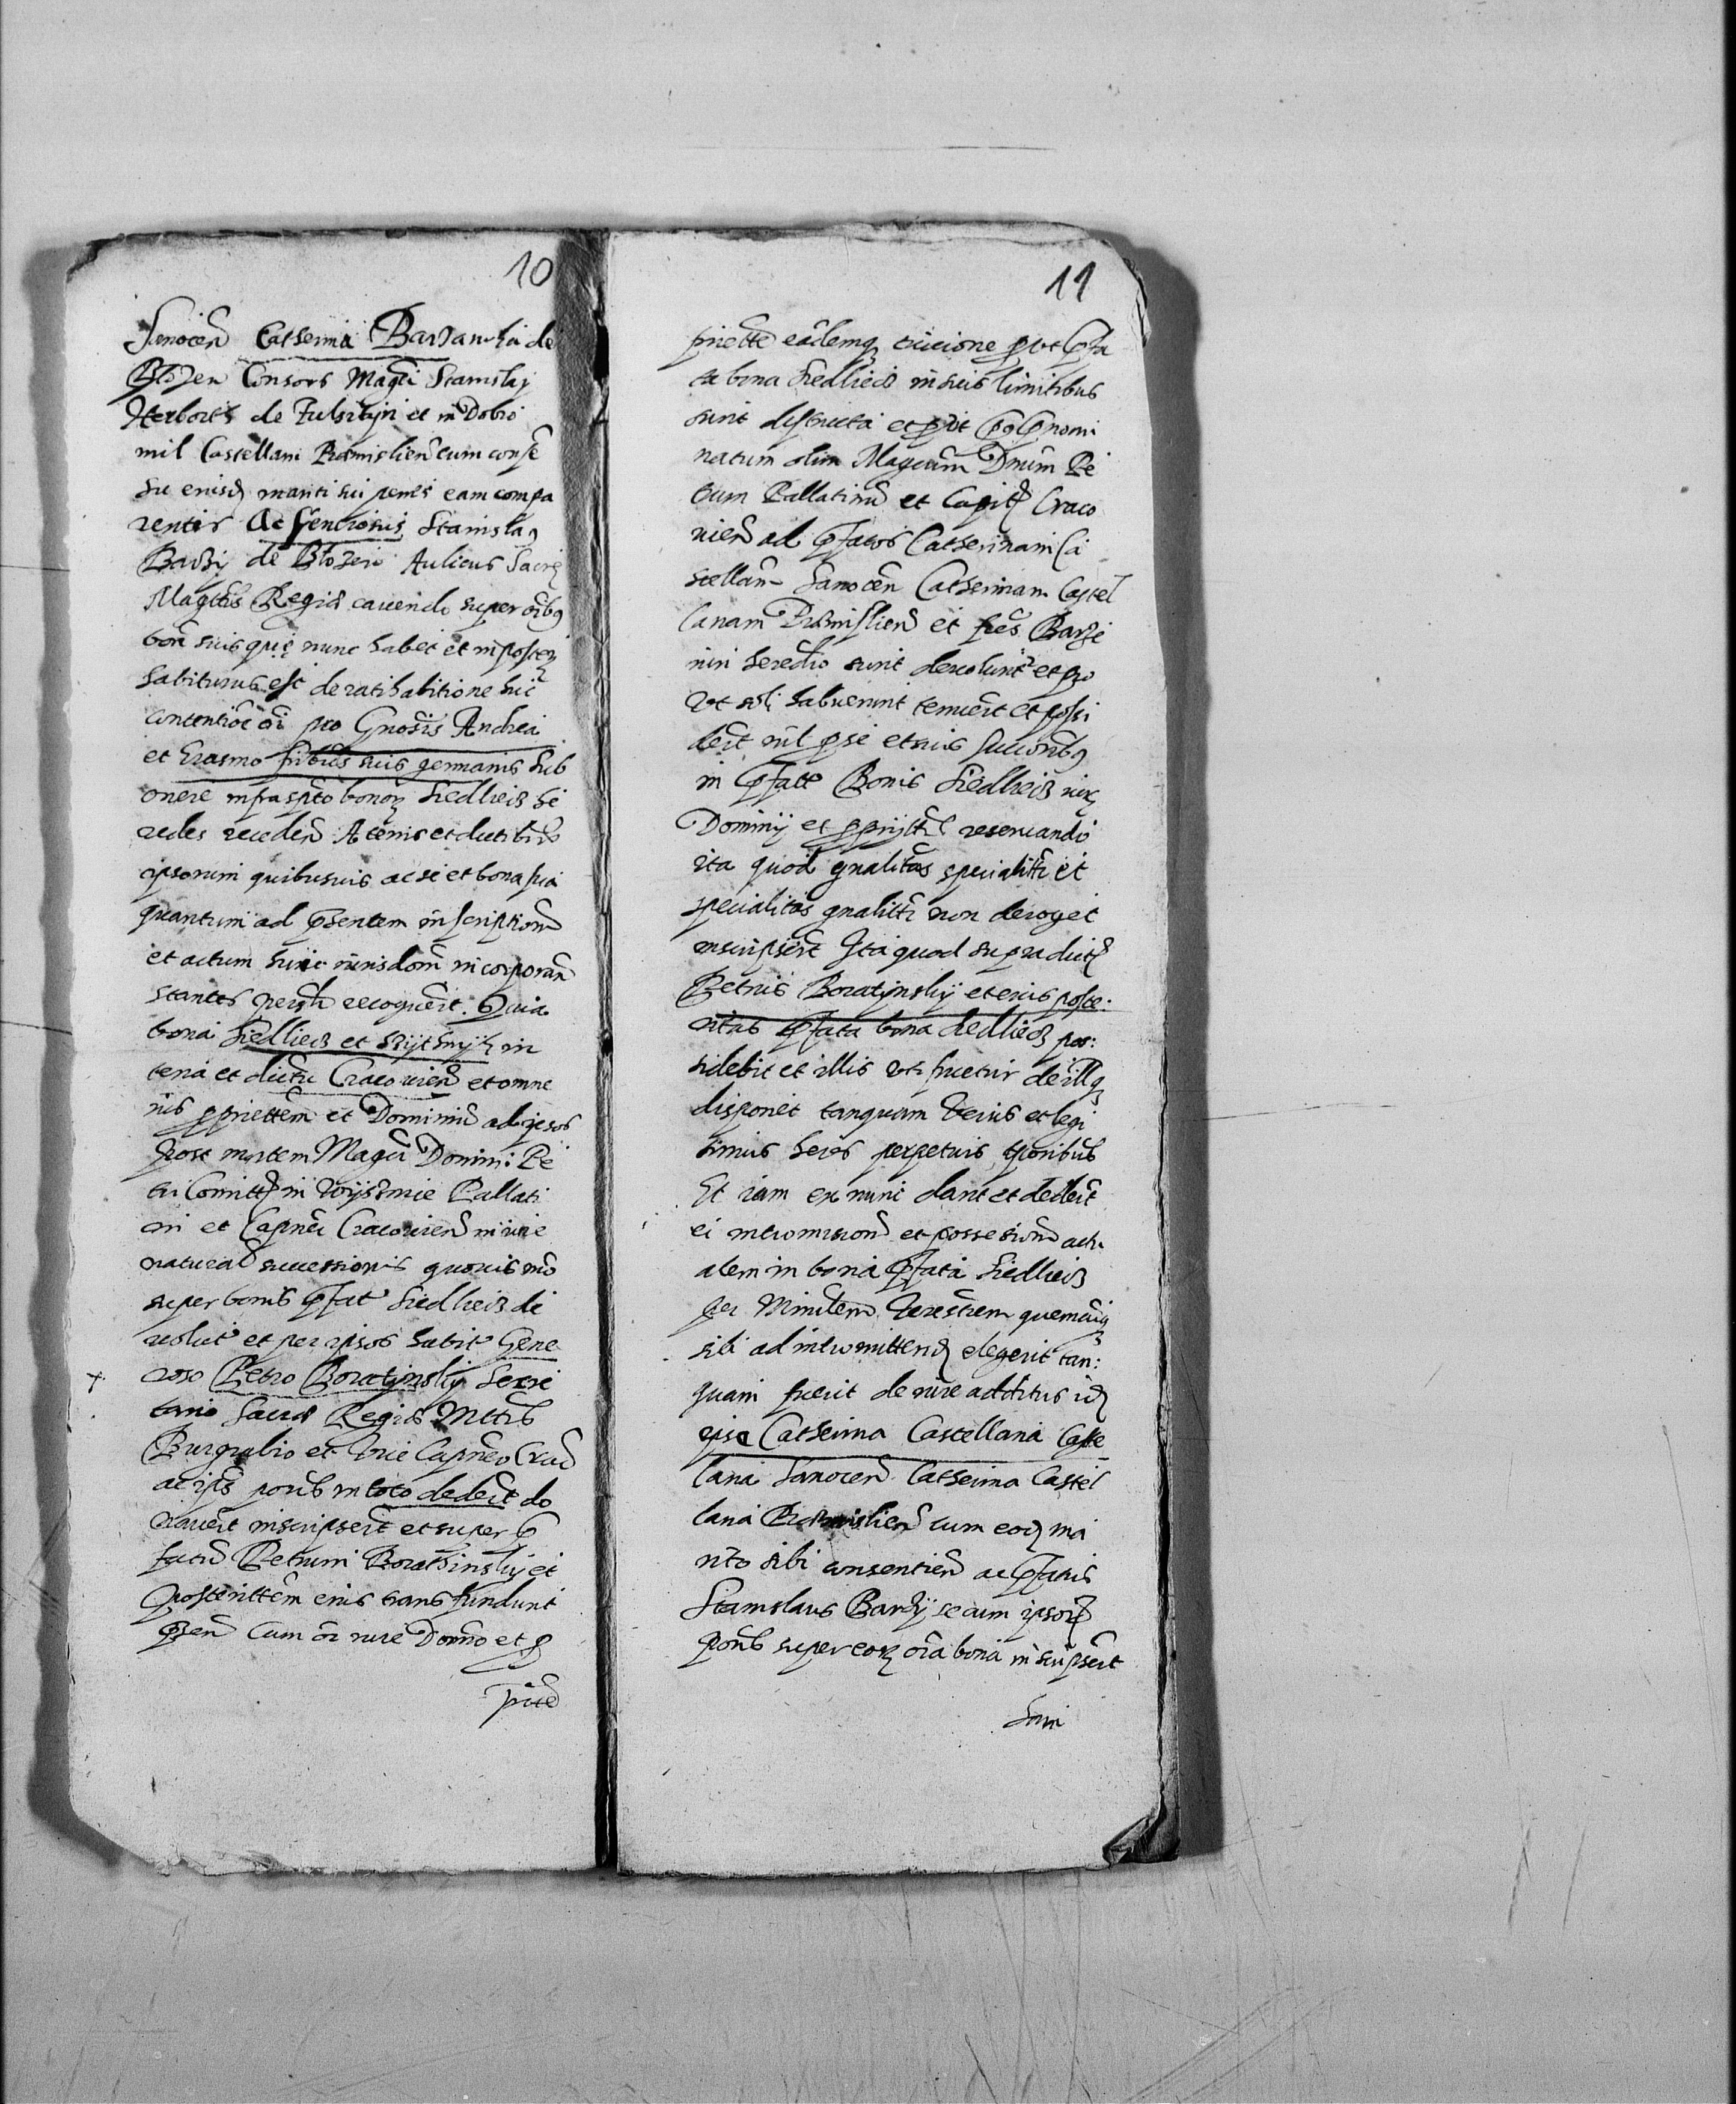 10
Sanocen Catherina Barzanka de
Blozen Consors Magci Stanislaj
Herborth de Fulsztijn et in Dobro
mil Castellani Premislien cum conse
su eiusd mariti sui penes eam compa
rentis Ac Generosus Stanislaus
Barzy de Blozen Aulicus Sacre
Magttis Regie cavendo super oibus
bon suis que nunc habet et in poster
habiturus est de ratihabitione huic
contention oi pro Gnosis Andrea
et Erasmo fribus suis germanis sub
onere infraspto bonor Siedliecz he
redes receden A terris et dictibus
ipsorum quibusvis ac se et bona sua
quantum ad psentem inscription
et actum huic iurisdom incorporan
stantes persl recognert. Quia
bona Siedliecz et in
terra et dictu Cracovien et omne
ius ppriettem et Dominiu ad ipsos
post mortem Magci Domini Pe
tri Comitt in Wijsnnie Pallati
ni et Capnei Cracovien in iure
natural successionis quovis mo
super bonis pfat Siedliecz de
volut et per ipsos habit Gene
roso Petro Boratijnskij Secre
tario Sacre Regie Mttis
Burgrabio et Vice Capneo Crac
ac ips porib in toto dedert do
navert inscripsert et super p
fatu Petrum Borathinskij et
posterittem eius transfundunt
psen Cum oi iure Domno et p
priet
11
priette eademq evicione prut pfa
ta bona Siedliecz in suis limitibus
sunt distincta et prut pnomi
natum olim Magcum Dnum Pe
trum Pallatinu et Capit Craco
vien ad pfatos Catherinam Ca
stellan Sanocen Catherinam Castel
lanam Premislien et fres Barzi
iuri heredio sunt devolunt et pro
ut soli habuerunt tenuert et possi
dert nil pse et suis succoribus
in pfatt Bonis Siedliecz iur
Dominij et pprijtt reservando
ita quod gnalitas specialitr et
specialitas gnalitr non deroget
inscripsert Ita quod supradict
Petrus Boratijnskij et eius poste:
ritas pfata bona Siedliecz pos:
sidebit et illis uti fruetur de illq
disponet tanquam verus et legi
timus heres perpetuis tporibus
Et iam ex nunc dant et dedert
ei intromission et possession actu
alem in bona pfata Siedliecz
per Ministem Terrestrem quemcuq
sibi ad intromittend elegerit tan:
quam fuerit de iure additus id
ipsa Catherina Castellana Caste
lana Sanocen Catherina Castel
lana Premislien cum eod ma
rito sibi consentien ac pfatus
Stanislaus Barzij se cum ipsor
porib super eor oia bona inscripsert